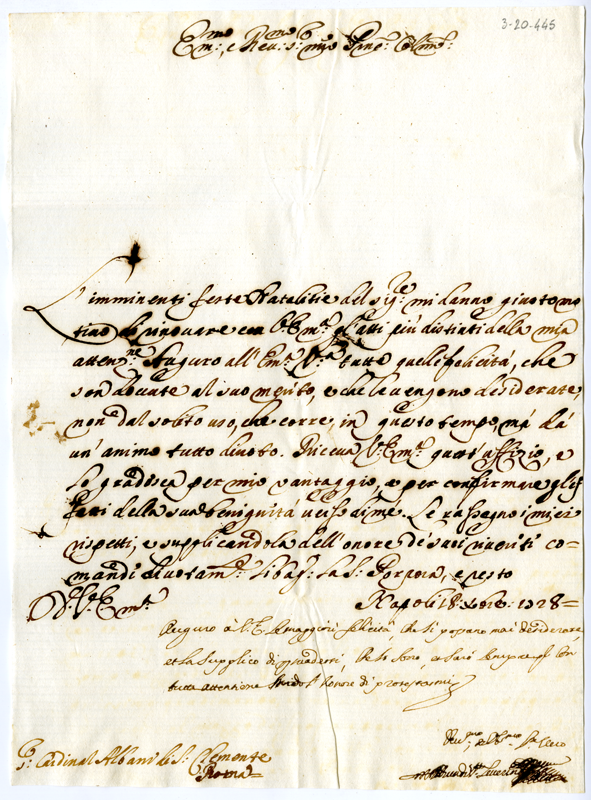 3-20-445
Em:mo e Reu:mo S: mio Sing: Colmo:
L'imminenti feste Natalitie del Sig:re mi danno giusto mo
tiuo di rinouare con V: Em:a gl'atti più distinti della mia
atten:ne Auguro all'Em:a V:ra tutte quelle felicità, che
son douute al suo merito, e che le uengono desiderate,
non dal solito uso, che corre, in questo tempo, mà dà
un'animo tutto diuoto. Riceua V: Em:a quest'uffizio, e
lo gradisca per mio vantaggio, e per confirmare gl'ef
fetti della sua benignità uerso di me. Le rassegno i miei
rispetti, e supplicandola dell'onore de' suoi riueriti co=
mandi diuotam:te li bagio la S: Porpora, e resto
D: V: Em:a Napoli 18: Xbre: 1728=
Auguro à V. E. le maggiori felicità che si possano mai desiderare,
et la supplico di che io sono, e sarò sempre
tutta attentione l'honore di protestarmi
S: Cardinal Albani di S: Clemente
Roma=